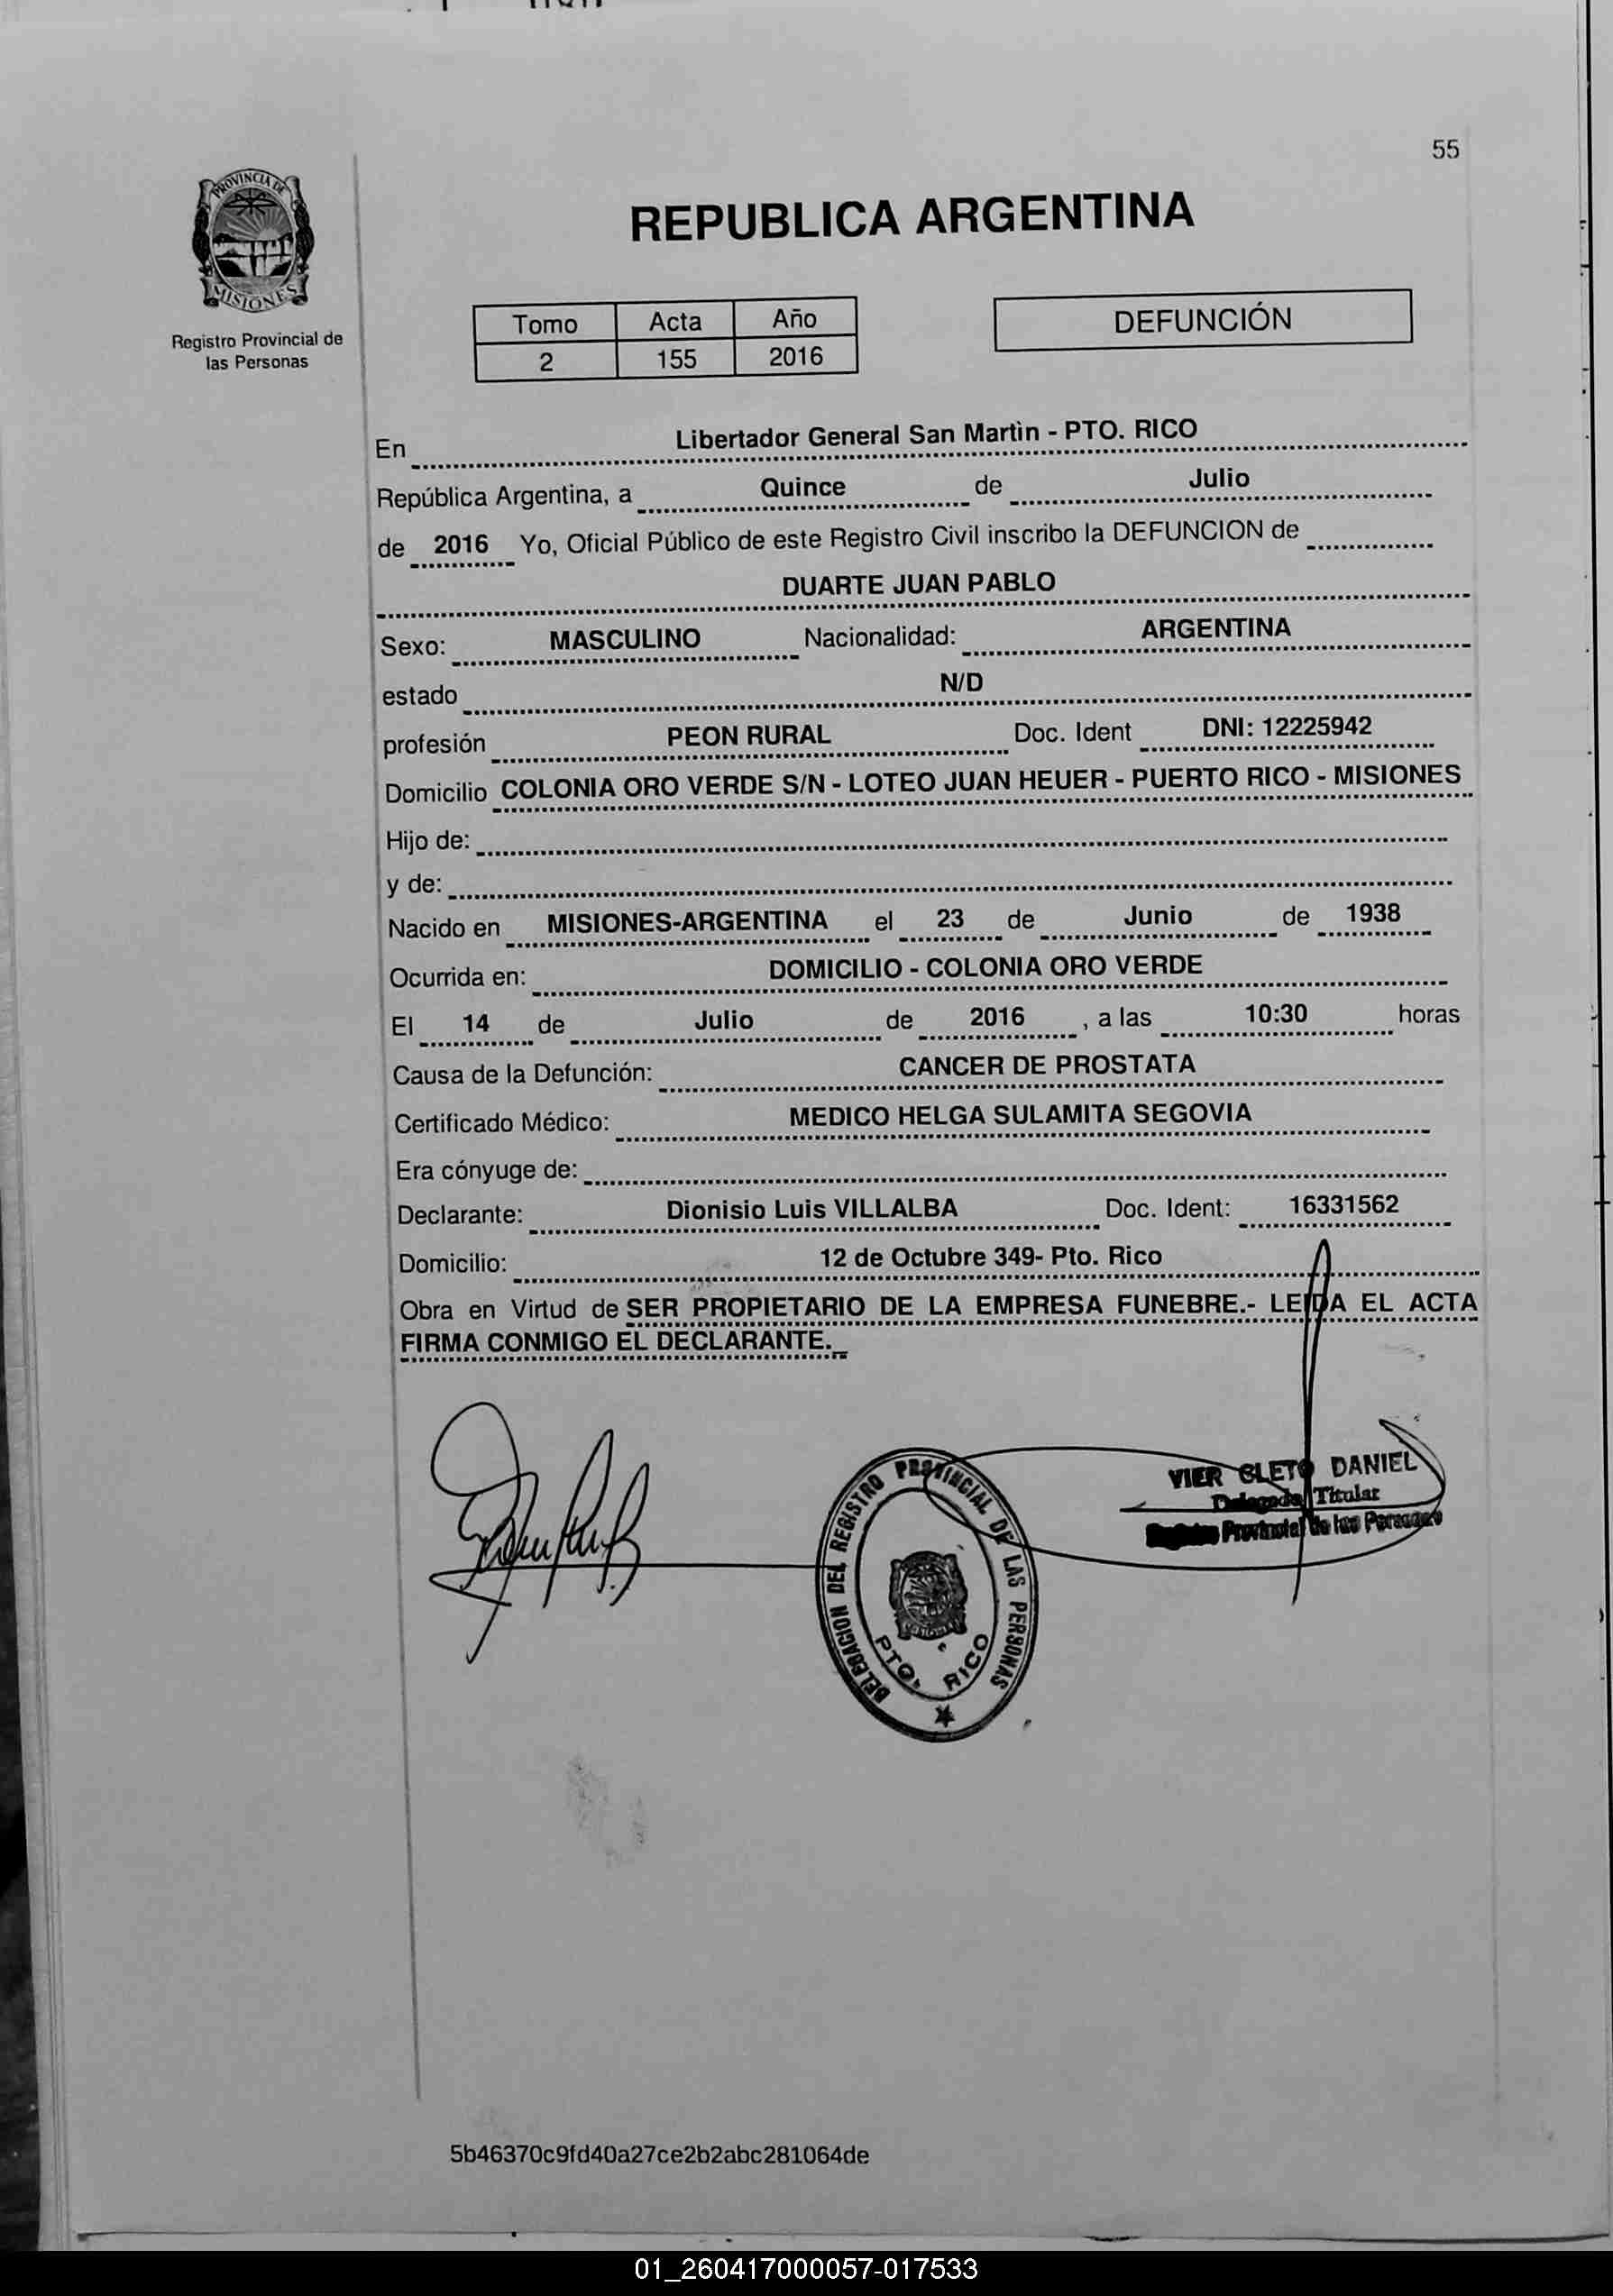 55
PROVINCIA DE
MISIONES
Registro Provincial de
las Personas
REPUBLICA ARGENTINA
Tomo Acta Año
2 155 2016
DEFUNCIÓN
En Libertador General San Martìn - PTO. RICO
República Argentina, a Quince de Julio
de 2016 Yo, Oficial Público de este Registro Civil inscribo la DEFUNCION de
DUARTE JUAN PABLO
Sexo: MASCULINO Nacionalidad: ARGENTINA
estado N/D
profesión PEON RURAL Doc. Ident DNI: 12225942
Domicilio COLONIA ORO VERDE S/N - LOTEO JUAN HEUER - PUERTO RICO - MISIONES
Hijo de:
y de:
Nacido en MISIONES-ARGENTINA el 23 de Junio de 1938
Ocurrida en: DOMICILIO - COLONIA ORO VERDE
El 14 de Julio de 2016 , a las 10:30 horas
Causa de la Defunción: CANCER DE PROSTATA
Certificado Médico: MEDICO HELGA SULAMITA SEGOVIA
Era cónyuge de:
Declarante: Dionisio Luis VILLALBA Doc. Ident: 16331562
Domicilio: 12 de Octubre 349- Pto. Rico
Obra en Virtud de SER PROPIETARIO DE LA EMPRESA FUNEBRE.- LEIDA EL ACTA
FIRMA CONMIGO EL DECLARANTE.
VIER CLETO DANIEL
Delegado Titular
Provincial de las Personas
DELEGACION DEL REGISTRO PROVINCIAL DE LAS PERSONAS
PTO. RICO
5b46370c9fd40a27ce2b2abc281064de
01_260417000057-017533